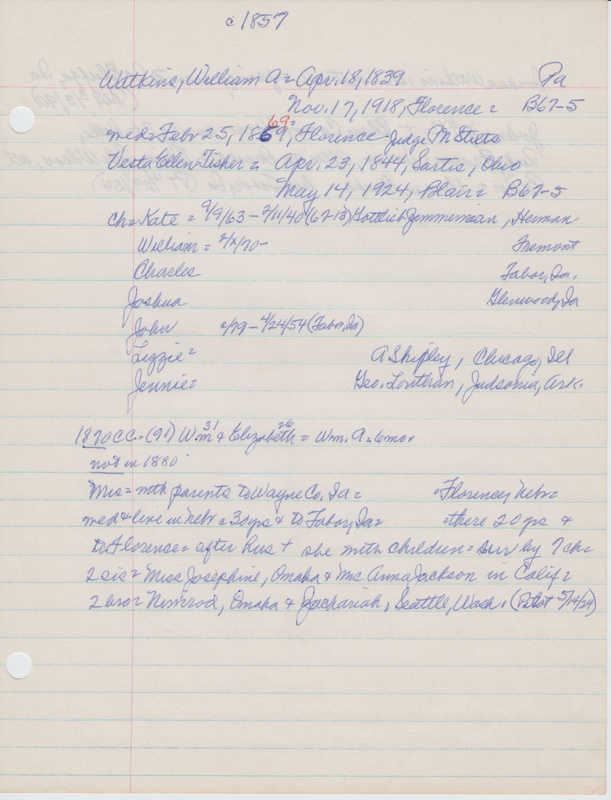 c1857
Watkins, William A = Apr. 18, 1839 Pa
Nov. 17, 1918, Florence = B67-5
69?
med = Febr 25, 1869, Florence - Judge P M Stutts
Vesta Ellen Tisher = Apr. 23, 1844, Sartis, Ohio
May 14, 1924, Blair = B67-5
Ch = Kate = 9/9/63 - 2/11/40 (67-13) Gottlieb Zimmerman, Herman
William = 2/x/70 - Fremont
Charles Tabor, Ia.
Joshua Glenwood, Ia
John c/79 - 4/24/54 (Tabor, Ia)
Lizzie = A Shipley, Chicago, Ill
Jennie = Geo. Lonthan, Judsonia, Ark.
1870 CC = (91) Wm 31 & Elizabeth 26 = Wm. A = 6 mo.
not in 1880
Mrs = with parents to Wayne Co. Ia = Florence, Nebr =
med & live in Nebr c 30 yrs & to Tabor, Ia = there 20 yrs &
to Florence = after hus + she with children = sur by 7 ch =
2 sis = Miss Josephine, Omaha & Mrs Anna Jackson in Calif =
2 bro = Nimrod, Omaha & Zachariah, Seattle, Wash. (Pilot 5/14/24)